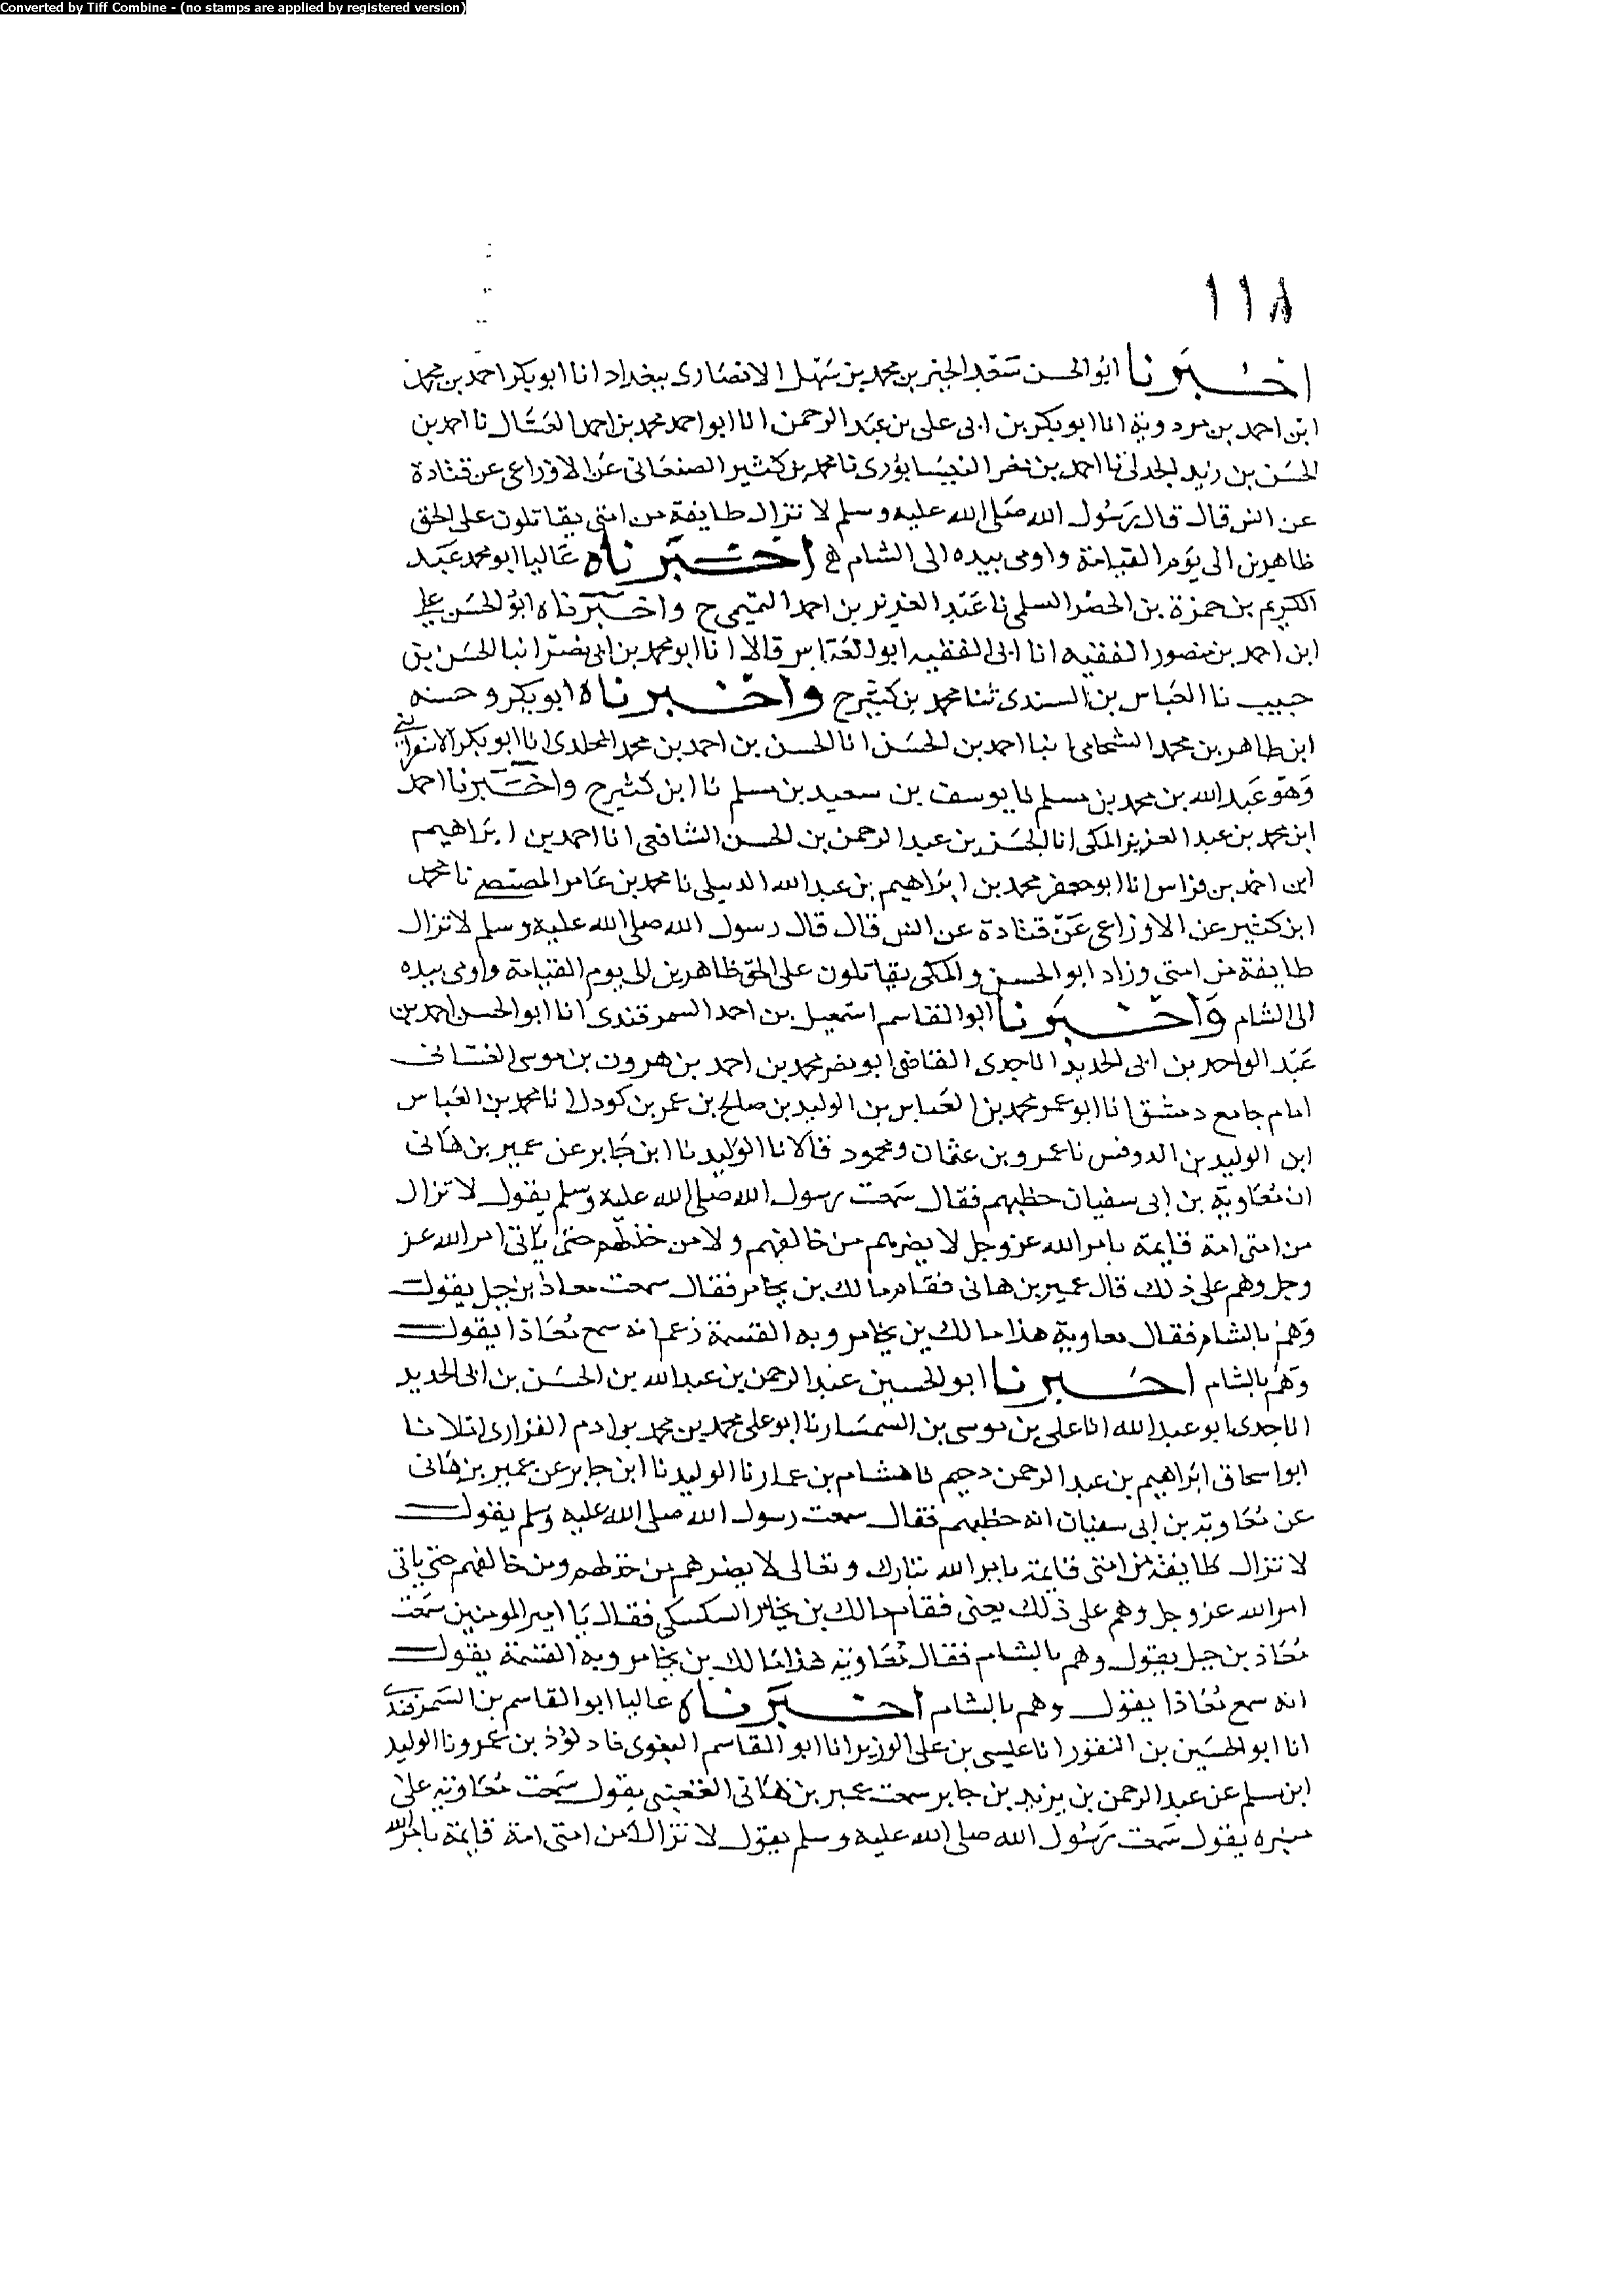 Converted by Tiff Combine - (no stamps are applied by registered version)
١١٨
اخبرنا ابو الحسن سعد الخير بن محمد بن سهل الانصارى ببغداد انا ابو بكر احمد بن محمد
ابن احمد بن مردوية انا ابو بكر بن ابى على بن عبد الرحمن انا ابو احمد محمد بن احمد العسال نا احمد بن
الحسن بن زيد نا احمد بن نصر النيسابورى نا محمد بن كثير الصنعانى عن الاوزاعى عن قتادة
عن انس قال قال رسول الله صلى الله عليه وسلم لا تزال طايفة من امتى يقاتلون على الحق
ظاهرين الى يوم القيامة واومى بيده الى الشام اخبرناه عاليا ابو محمد عبد
الكريم بن حمزة بن الخضر السلمى نا عبد العزيز بن احمد التميمى ح واخبرناه ابو الحسن على
ابن احمد بن منصور الفقيه انا ابى الفقيه ابو العباس قالا انا ابو محمد بن ابى نصر انبا الحسن بن
حبيب نا العباس بن السندى ثنا محمد بن كثير ح واخبرناه ابو بكر وحسنه
ابن طاهر بن محمد الشحامى انبا احمد بن الحسن انا الحسن بن احمد بن محمد المخلدى انا ابو بكر الاسفراينى
وهو عبد الله بن محمد بن مسلم نا يوسف بن سعيد بن مسلم نا ابن كثير ح واخبرنا احمد
ابن محمد بن عبد العزيز المكى انا الحسن بن عبد الرحمن بن الحسن الشافعى انا احمد بن ابراهيم
ابن احمد بن فراس انا ابو جعفر محمد بن ابراهيم بن عبد الله الديبلى نا محمد بن عامر المصيصى نا محمد
ابن كثير عن الاوزاعى عن قتادة عن انس قال قال رسول الله صلى الله عليه وسلم لا تزال
طايفة من امتى وزاد ابو الحسن والمكى يقاتلون على الحق ظاهرين الى يوم القيامة واومى بيده
الى الشام واخبرنا ابو القاسم اسمعيل بن احمد السمرقندى انا ابو الحسن احمد بن
عبد الواحد بن ابى الحديد انا جدى القاضى ابو نصر محمد بن احمد بن هرون بن موسى الغسانى
امام جامع دمشق انا ابو عمر محمد بن العباس بن الوليد بن صالح بن عمر بن كودك نا محمد بن العباس
ابن الوليد بن الدرفس نا عمرو بن عثمان ومحمود قالا نا الوليد نا ابن جابر عن عمير بن هانى
ان معاوية بن ابى سفيان خطبهم فقال سمعت رسول الله صلى الله عليه وسلم يقول لا تزال
من امتى امة قايمة بامر الله عز وجل لا يضرهم من خالفهم ولا من خذلهم حتى ياتى امر الله عز
وجل وهم على ذلك قال عمير بن هانى فقام مالك بن يخامر فقال سمعت معاذ بن جبل يقول
وهم بالشام فقال معاوية هذا مالك بن يخامر وبه القتمة زعم انه سمع معاذا يقول
وهم بالشام اخبرنا ابو الحسين عبد الرحمن بن عبد الله بن الحسن بن ابى الحديد
انا جدى ابو عبد الله انا على بن موسى بن السمسار نا ابو على محمد بن محمد بن ادم الفزارى املانا
ابو اسحاق ابراهيم بن عبد الرحمن دحيم نا هشام بن عمار نا الوليد نا ابن جابر عن عمير بن هانى
عن معاوية بن ابى سفيان انه خطبهم فقال سمعت رسول الله صلى الله عليه وسلم يقول
لا تزال طايفة من امتى قايمة بامر الله تبارك وتعالى لا يضرهم من خذلهم ومن خالفهم حتى ياتى
امر الله عز وجل وهم على ذلك يعنى فقام مالك بن يخامر السكسكى فقال يا امير المومنين سمعت
معاذ بن جبل يقول وهم بالشام فقال معاوية هذا مالك بن يخامر وبه القتمة يقول
انه سمع معاذا يقول وهم بالشام اخبرناه عاليا ابو القاسم بن السمرقندى
انا ابو الحسين بن النقور انا عيسى بن على الوزير انا ابو القاسم البغوى نا داود بن عمرو نا الوليد
ابن مسلم عن عبد الرحمن بن يزيد بن جابر سمعت عمير بن هانى يقول سمعت معاوية على
منبره يقول سمعت رسول الله صلى الله عليه وسلم يقول لا تزال من امتى امة قايمة بامر الله